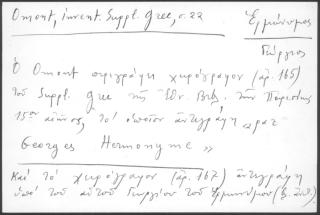 Omont, invent. Suppl. Grec, σ. 22
Ἑρμώνυμος
Γεώργιος
Ὁ Omont περιγράφει χειρόγραφον (ἀρ. 165)
τοῦ Suppl. Grec τῆς Ἐθν. Βιβλ. τῶν Παρισίων
15ου αἰῶνος, τὸ ὁποῖον ἀντεγράφη «par
Georges Hermonyme»
Καὶ τὸ χειρόγραφον (ἀρ. 167) ἀντεγράφη
ὑπὸ τοῦ αὐτοῦ Γεωργίου τοῦ Ἑρμωνύμου